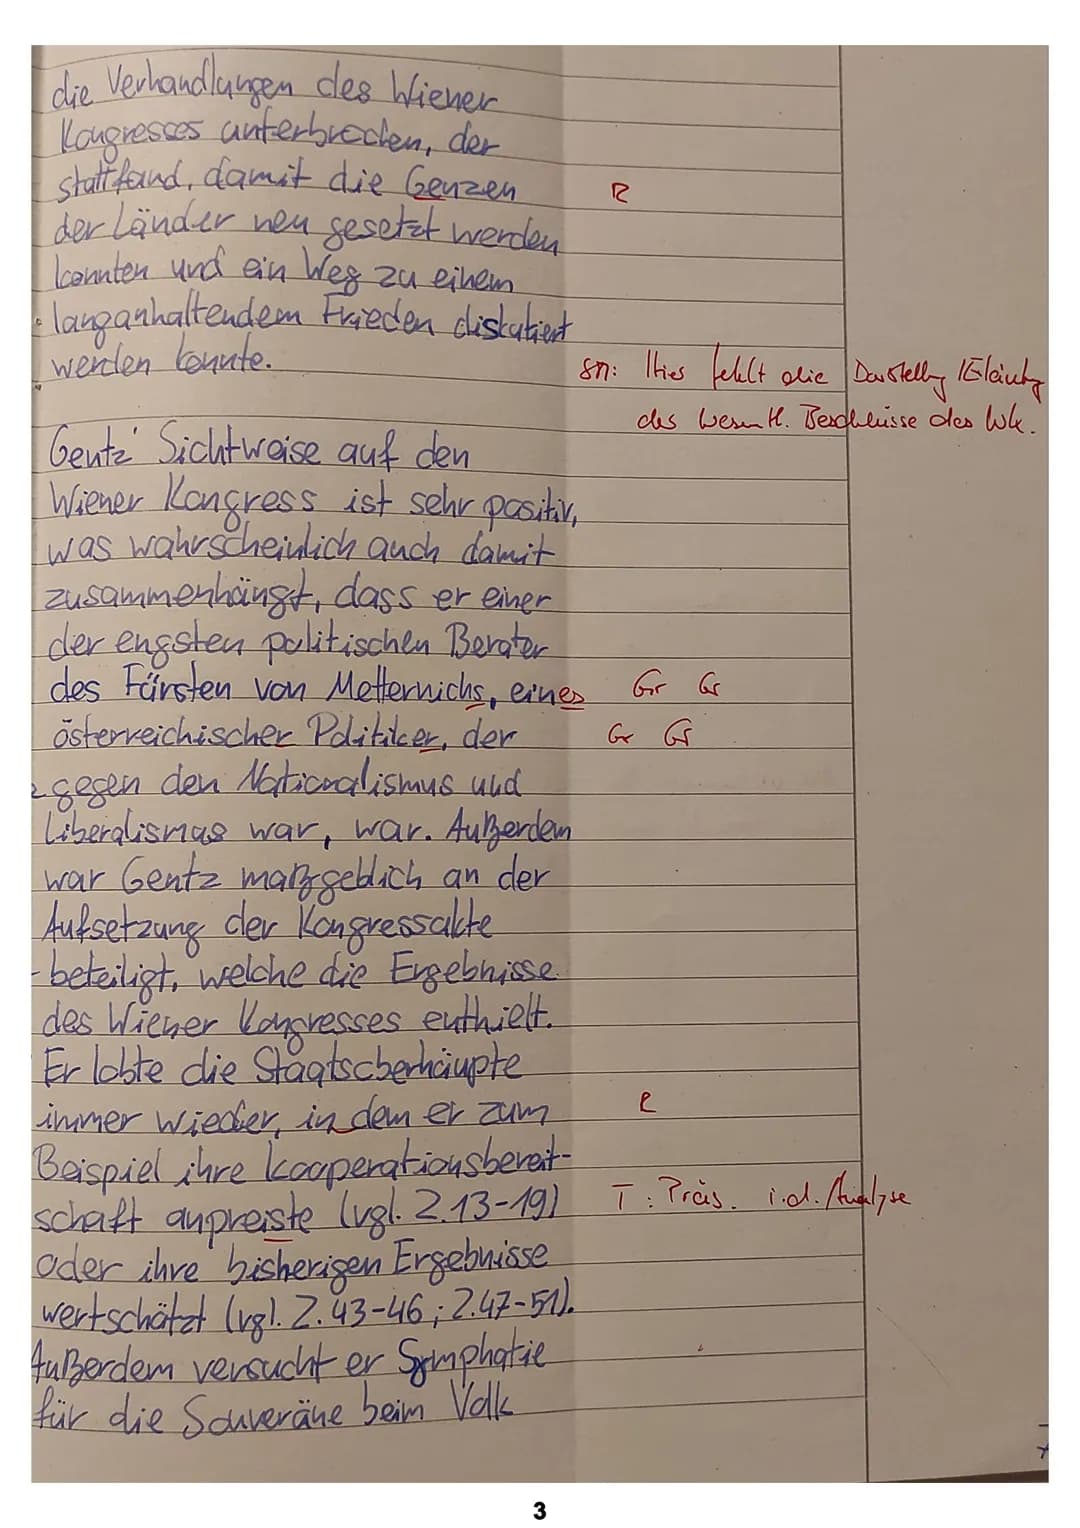 die Verhandlungen des Wiener
Kongresses unterbrochen, der
stattfand, damit die Genzen R
der Länder neu gesetzt werden
konnten und ein Weg zu einem
langanhaltendem Frieden diskutiert
werden konnte.
sn: Hier fehlt die Darstellg /Erläutg
des wesentl. Beschlüsse des WK.
Gentz' Sichtweise auf den
Wiener Kongress ist sehr positiv,
was wahrscheinlich auch damit
zusammenhängt, dass er einer
der engsten politischen Berater
des Fürsten von Metternichs, eines Gr Gr
österreichischer Politiker, der Gr Gr
gegen den Nationalismus und
Liberalismus war, war. Außerdem
war Gentz maßgeblich an der
Aufsetzung der Kongressakte
beteiligt, welche die Ergebnisse
des Wiener Kongresses enthielt.
Er lobte die Staatsoberhäupte
immer wieder, in dem er zum R
Beispiel ihre Kooperationsbereit-
schaft anpreiste (vgl. Z.13-19) T: Präs. i.d. Analyse
oder ihre bisherigen Ergebnisse
wertschätzt (vgl. Z.43-46; Z.47-51).
Außerdem versucht er Symphatie
für die Souveräne beim Volk
3